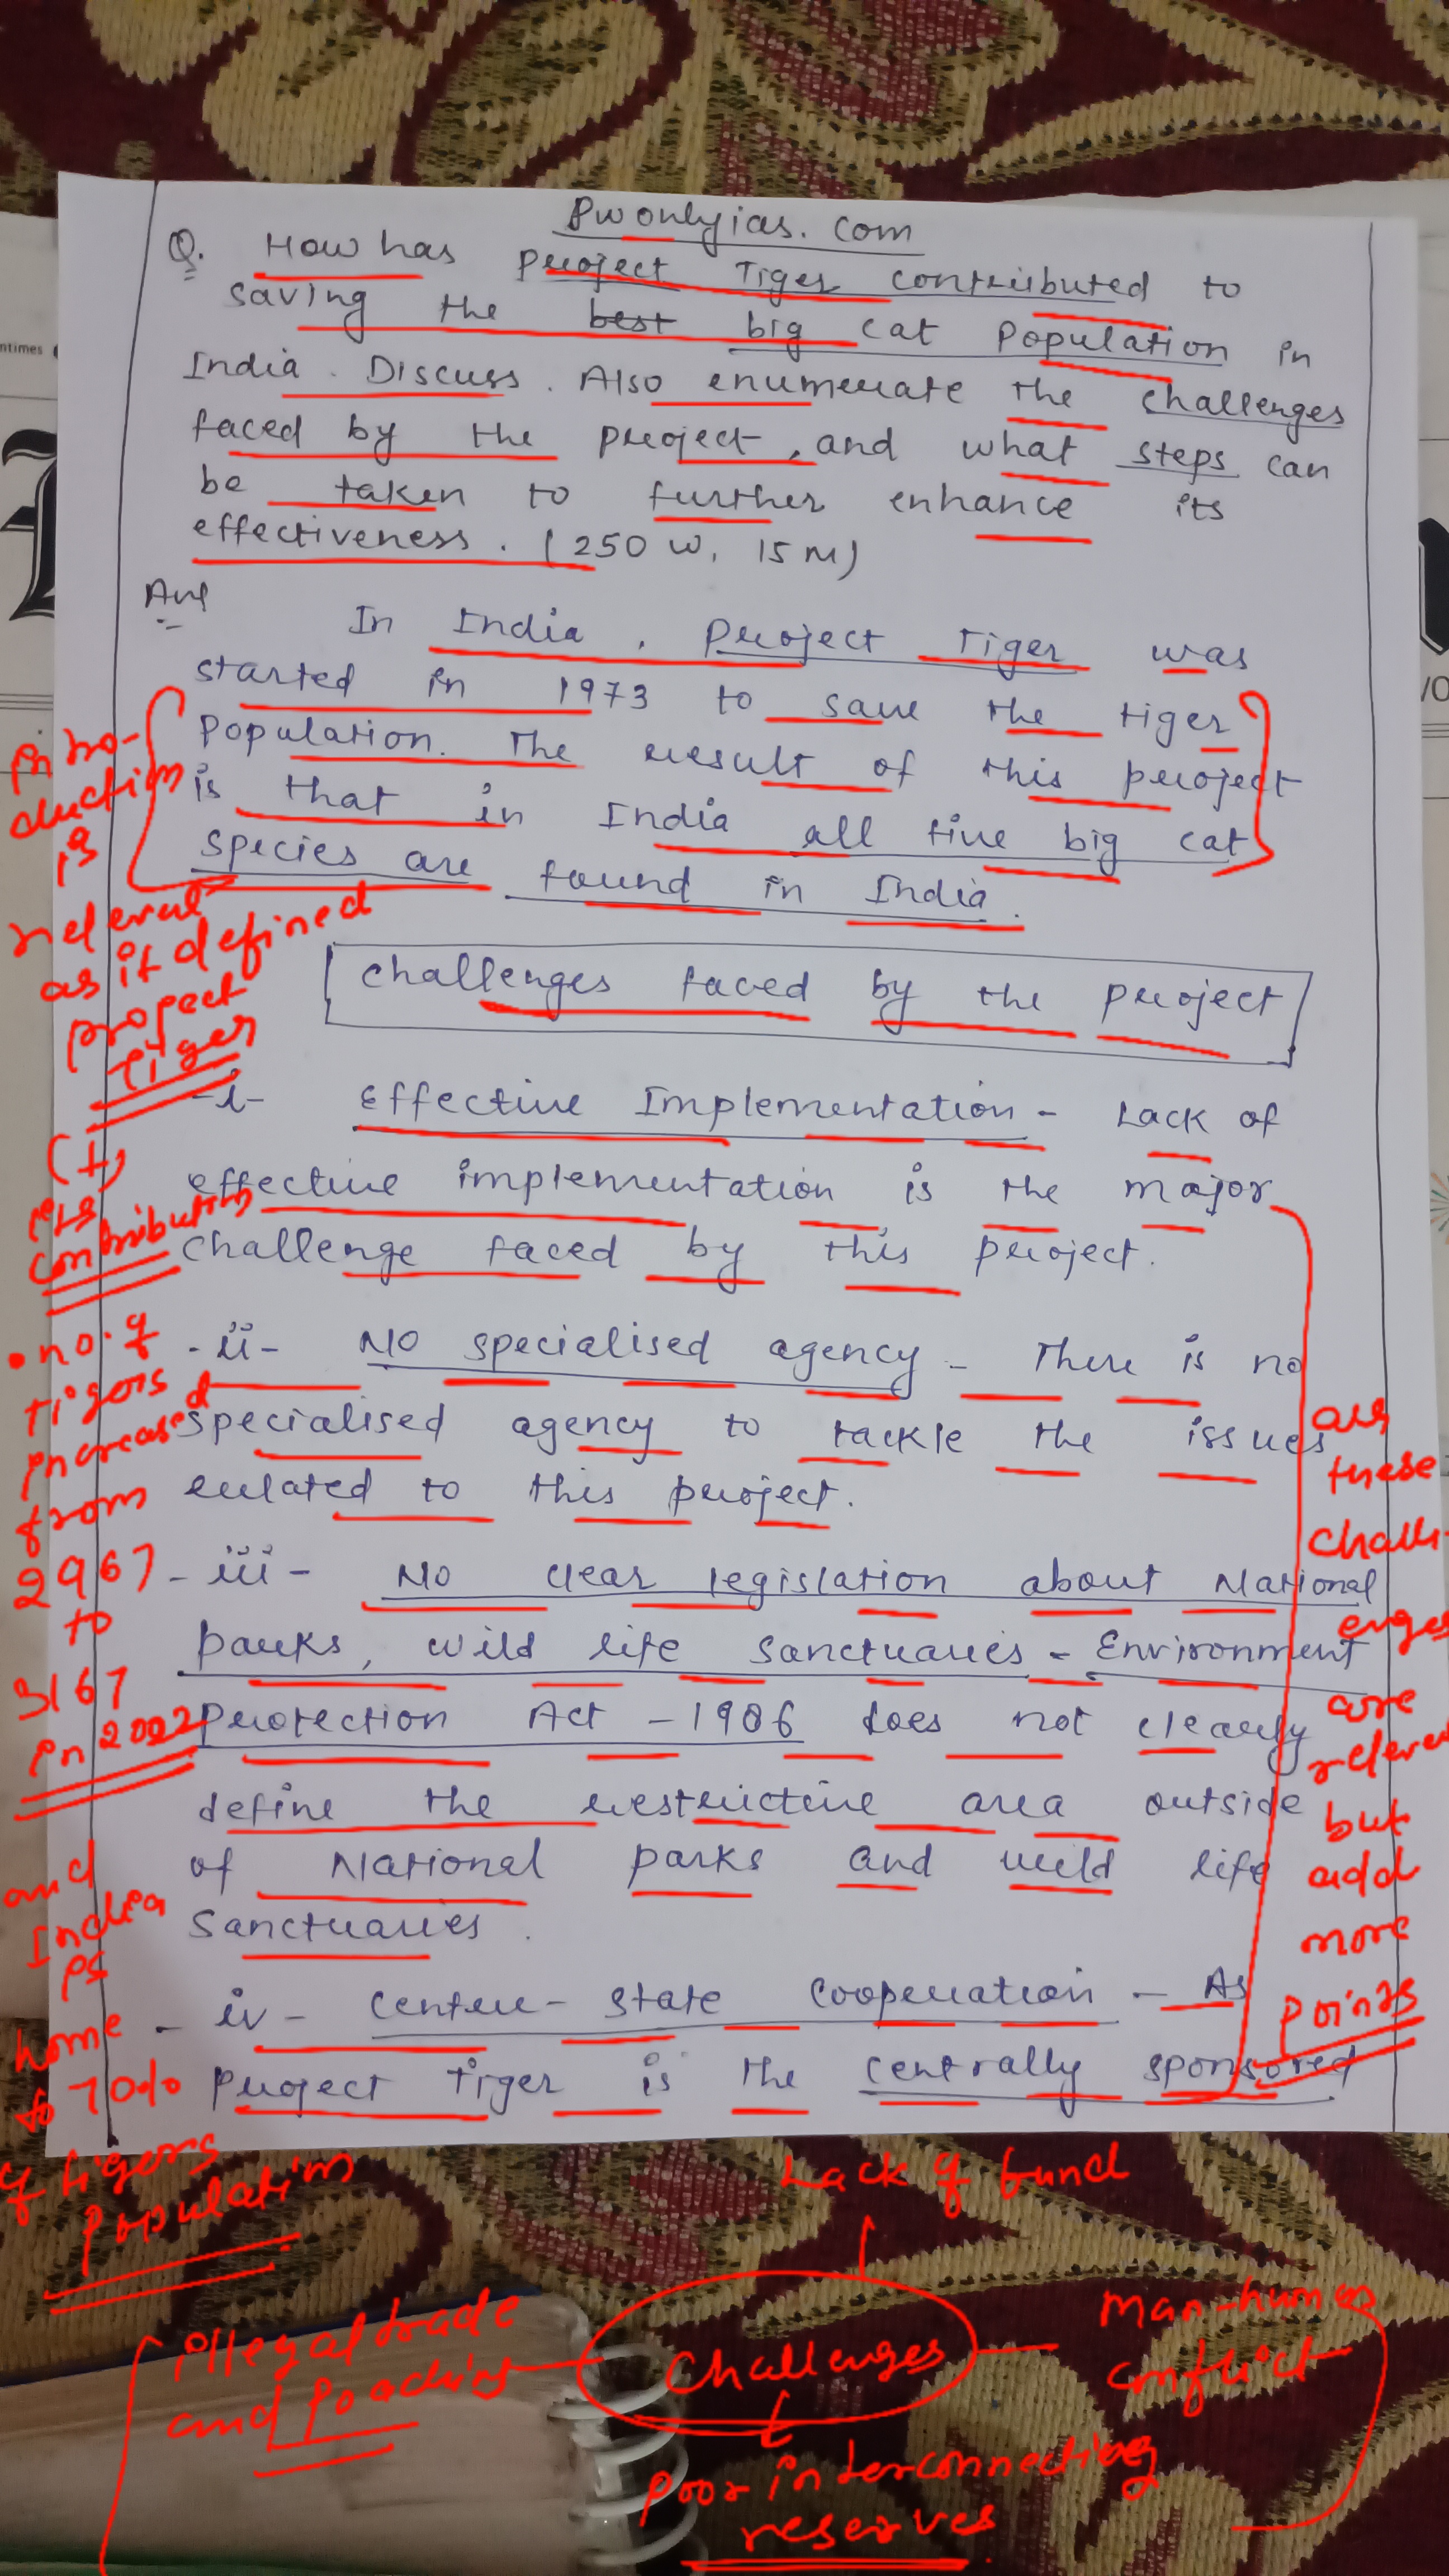 Pwonlyias. com
Q. How has project Tiger contributed to
saving the best big cat population in
India. Discuss. Also enumerate the challenges
faced by the project, and what steps can
be taken to further enhance its
effectiveness. (250 W, 15 M)
Ans
In India, Project Tiger was
started in 1973 to save the tiger
population. The result of this project
is that in India all five big cat
species are found in India.
Challenges faced by the project
-i- Effective Implementation - Lack of
effective implementation is the major
challenge faced by this project.
-ii- No specialised agency - There is no
specialised agency to tackle the issues
related to this project.
-iii- No clear legislation about National
Parks, wild life sanctuaries - Environment
Protection Act - 1986 does not clearly
define the restrictive area outside
of National parks and wild life
Sanctuaries.
-iv- Centre-state cooperation - As
project tiger is the centrally sponsored
intro-
duction
is
as it defined
project
Tiger
contributing
• no. of
tigers
increased
from
2967
to
3167
in 2022
and
India
is
home
to 70%
of tigers
population
these
chall-
enges
are
but
add
more
points
Lack of fund
illegal trade
and poaching
Challenges
Man-human
conflict
poor interconnecting
reserves
ntimes